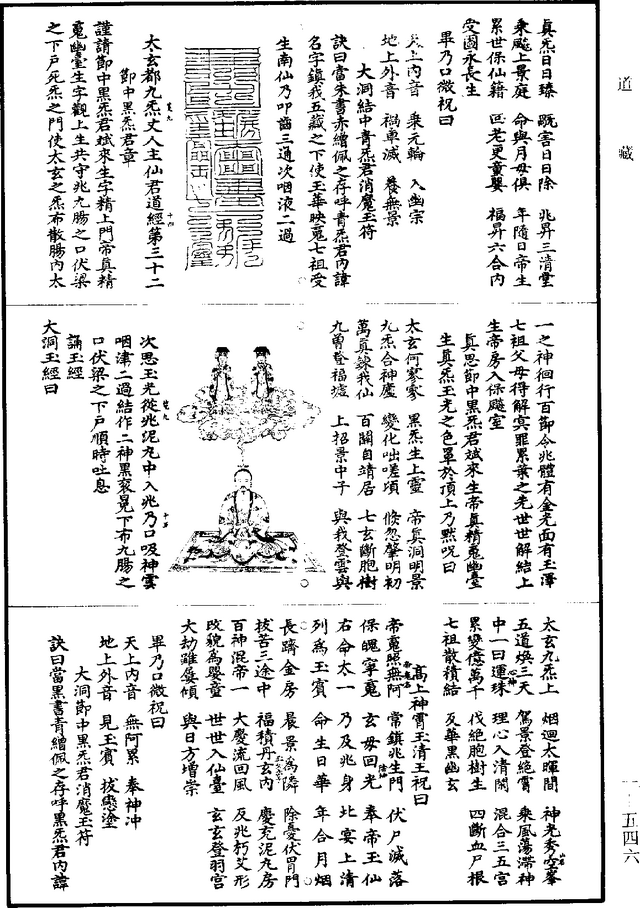 道藏
真炁日日臻　既害日日除　兆昇三清堂
乘飈上景庭　命與月母俱　年隨日帝生
累世保仙籍　匹老更童嬰　福昇六合內
受圖永長生
畢乃口微祝曰
天上內音　乘元輪　入幽宗
地上外音　禍車滅　養無景
大洞結中青炁君消魔玉符
訣曰當朱書赤繒佩之存呼青炁君內諱
名字鎮我五藏之下使玉華映冕七祖受
生南仙乃叩齒三通次咽液二過
太玄都九炁丈人主仙君道經第三十二
節中黑炁君章
謹請節中黑炁君斌來生字精上門帝真精
冕幽臺生字觀上生共守兆九腸之口伏梁
之下戶死炁之門使太玄之炁布散腸內太
一之神徊行百節令兆體有金光面有玉澤
七祖父母得解冥罪累葉之先世世解結上
生帝房入保飈室
真思節中黑炁君斌來生帝真精冕幽臺
生真炁玉光之色罩於頂上乃默呪曰
太玄何寥寥　黑炁生上靈　帝真洞明景
九炁合神廬　變化咄嗟頃　倏忽肇明初
萬真鍊我仙　百關自靖居　七玄斷胞樹
九曾登福墟　上招景中子　與我登雲輿
次思玉光從兆泥丸中入兆乃口吸神雲
咽津二過結作二神黑衮冕下布九腸之
口伏梁之下戶順時吐息
誦玉經
大洞玉經曰
太玄九炁上　烟迴太暉間　神光秀空峯
五道煥三天　駕景登絕霄　乘風蕩滯神
中一曰運珠　理心入清閑　混合三五宮
累變億萬千　伐絕胞樹生　四斷血尸根
七祖散積結　反華黑幽玄
高上神霄玉清王祝曰
帝冕照無阿　常鎮兆生門　伏尸滅落
保魄寧冕　玄母回光　奉帝玉仙
右命太一　乃及兆身　北宴上清
列為玉賓　命生日華　年合月烟
長躋金房　晨景為隣　除憂伏胃門
拔苦三途中　福積丹玄內　慶充泥丸房
百神混帝一　大慶流回風　反兆朽艾形
改貌為嬰童　世世入仙臺　玄玄登羽宮
大劫雖屢傾　與日方增崇
畢乃口微祝曰
天上內音　無阿累　奉神冲
地上外音　見玉賓　拔戀塗
大洞節中黑炁君消魔玉符
訣曰當黑書青繒佩之存呼黑炁君內諱
一—五四六